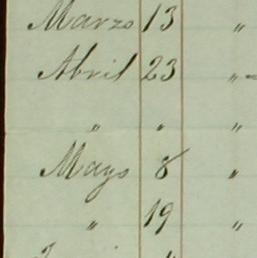 Marzo 13 "
Abril 23 "
" " "
Mayo 8 "
" 19 "